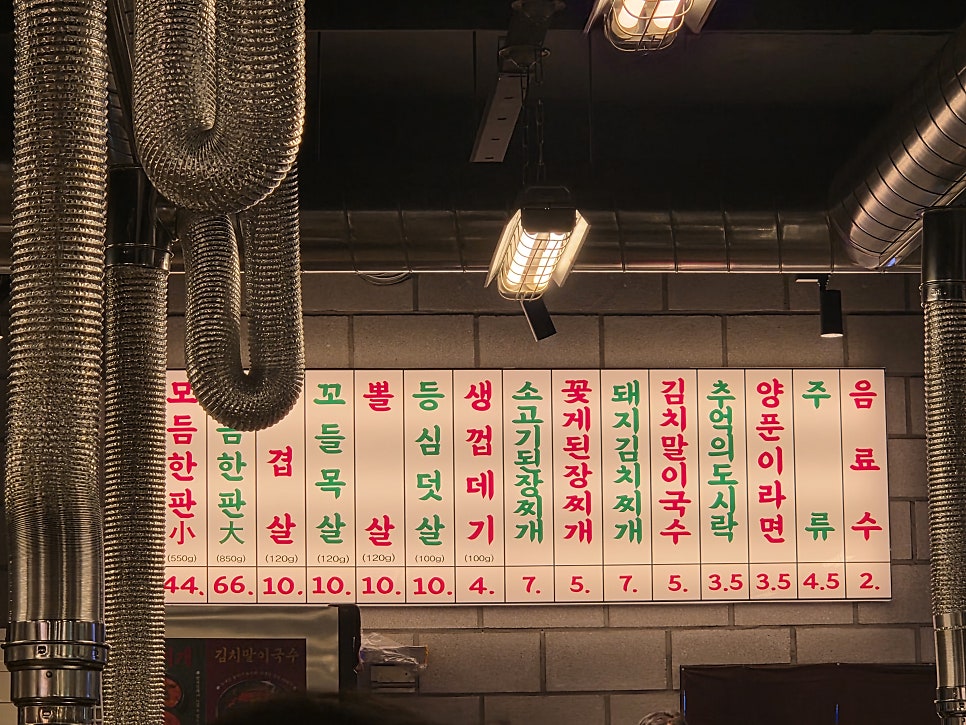 모듬한판小
(550g)
44.
듬한판大
(850g)
66.
겹살
(120g)
10.
꼬들목살
(120g)
10.
뽈살
(120g)
10.
등심덧살
(100g)
10.
생껍데기
(100g)
4.
소고기된장찌개
7.
꽃게된장찌개
5.
돼지김치찌개
7.
김치말이국수
5.
추억의도시락
3.5
양푼이라면
3.5
주류
4.5
음료수
2.
김치말이국수